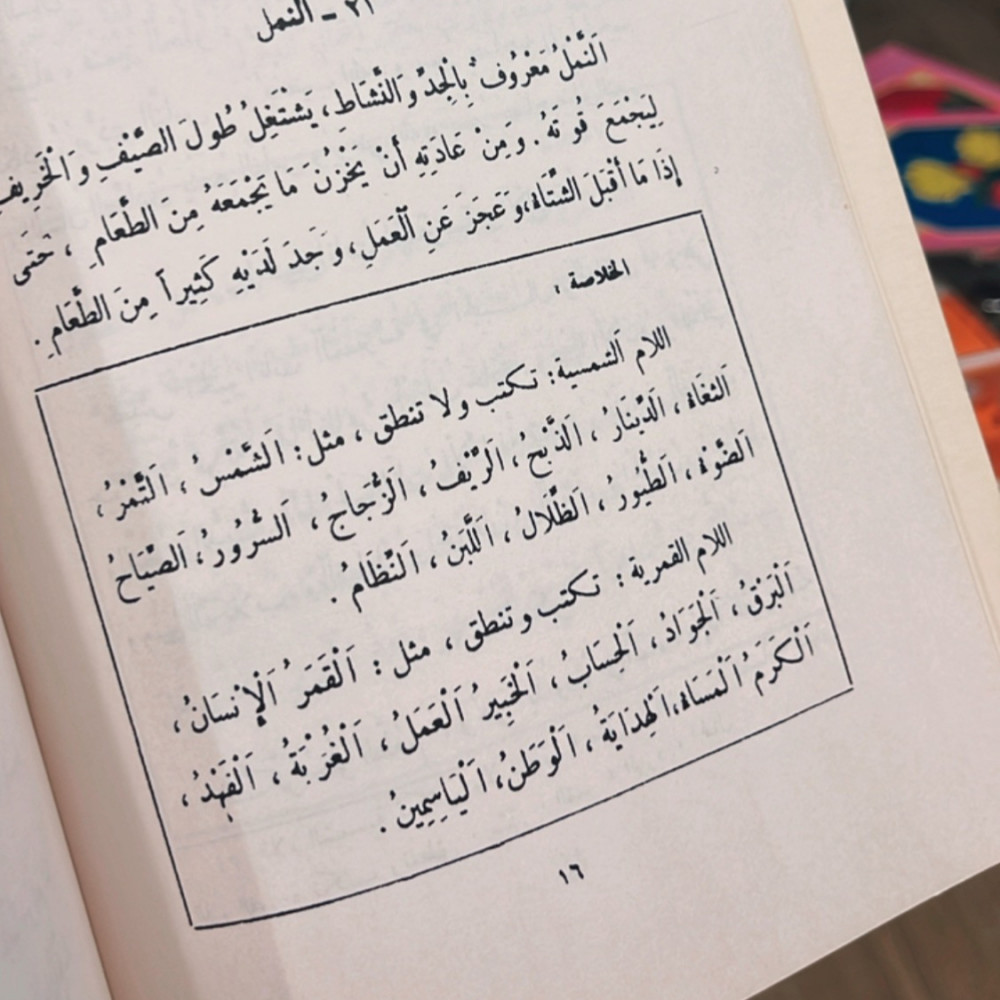 ٢١ ـ النمل
اَلنَّمْلُ مَعْرُوف بِالْجِدِّ وَالنَّشَاطِ، يَشْتَغِلُ طُولَ الصَّيْفِ وَالْخَرِيفِ
لِيَجْمَعَ قُوتَهُ. وَمِنْ عَادَتِهِ أَنْ يَخْزُنَ مَا يَجْمَعَهُ مِنَ الطَّعَامِ ، حَتَّى
إِذَا مَا أَقْبَلَ الشتَّاءُ، وَعَجَزَ عَنِ اَلْعَمَلِ، وَجَدَ لَدَيْهِ كَثِيراً مِنَ الطَّعَامِ .
الخلاصة :
اللام اَلشمسية: تكتب ولا تنطق ، مثل: اَلشَّمْسُ ، اَلتَّمْرُ ،
اَلثغَاءُ ، اَلدِّينَارُ ، اَلذَّبْحُ ، اَلرِّيْفُ ، اَلزُّجَاجُ ، اَلسُّرُورُ ، اَلصِّيَاحُ
اَلضَّوْءُ ، اَلطُّيُورُ ، اَلظِّلَالُ ، اَللَّبَنُ ، اَلنِّظَامُ .
اللام القمرية : تكتب وتنطق ، مثل : اَلْقَمَرُ اَلْإِنْسَانُ ،
اَلْبَرْقُ ، اَلْجَوَادُ ، اَلْحِسَابُ ، اَلْخَبِيرُ اَلْعَمَلُ ، اَلْغُرْبَةُ ، اَلْفَهْدُ ،
اَلْكَرَمُ اَلْمَسَاءُ، اَلْهِدَايَةُ ، اَلْوَطَنُ ، اَلْيَاسِمِينُ .
١٦